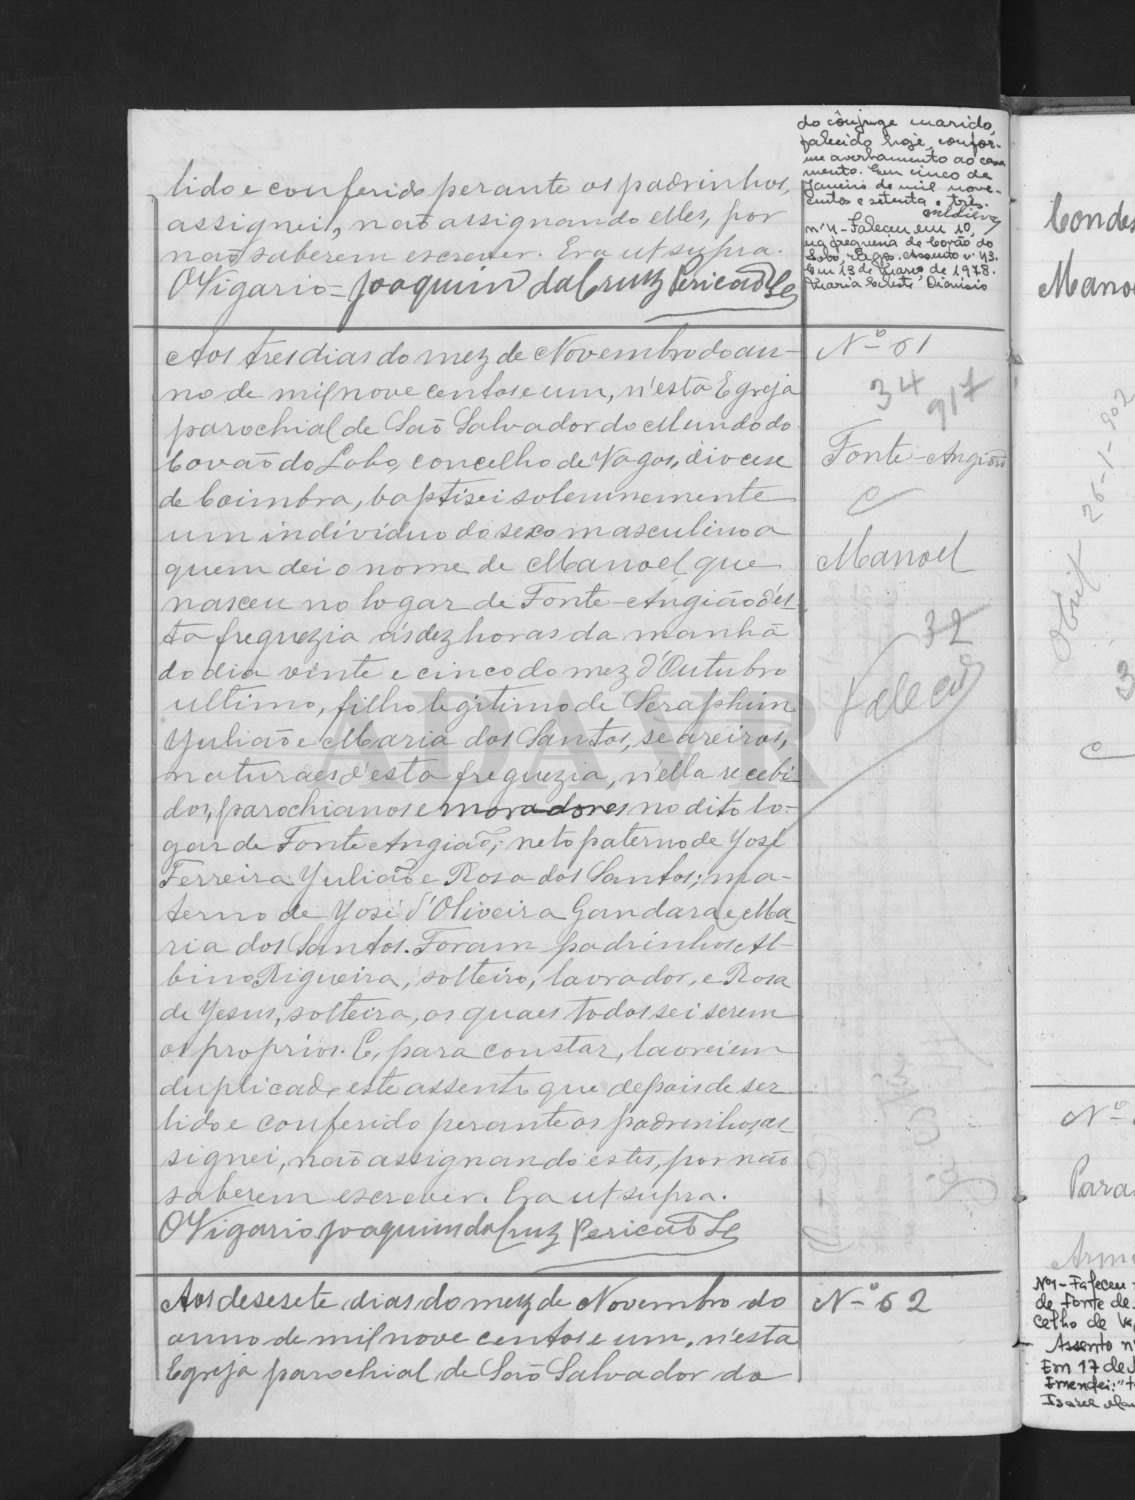 do cônjuge marido,
falecido hoje, confor-
me averbamento ao casa
mento. Em cinco de
Janeiro de mil nove-
centos e setenta e três.
nº 4 - Faleceu em 10,
na freguesia de Covão do
Lobo, Vagos. Assento nº 43.
Em 13 de Março de 1978.
Maria Celeste Dionisio
lido e conferido perante os padrinhos,
assignei, não assignando elles, por
não saberem escrever. Era ut supra.
O Vigario = Joaquim da Cruz Pericão
Aos tres dias do mez de Novembro do an-
no de mil nove centos e um, n'esta Egreja
parochial de São Salvador do Mundo do
Covão do Lobo, concelho de Vagos, diocese
de Coimbra, baptisei solemnemente
um individuo do sexo masculino a
quem dei o nome de Manoel que
nasceu no logar de Fonte-Angião d'es-
ta freguezia ás dez horas da manhã
do dia vinte e cinco do mez d'Outubro
ultimo, filho legitimo de Seraphim
Yulião e Maria dos Santos, seareiros,
naturaes d'esta freguezia, n'ella recebi-
dos, parochianos e moradores no dito lo-
gar de Fonte Angião; neto paterno de Yosé
Ferreira Yulião e Rosa dos Santos; ma-
terno de Yosé d'Oliveira Gandara e Ma-
ria dos Santos. Foram padrinhos Al-
bino Rigueira, solteiro, lavrador, e Rosa
de Yesus, solteira, os quaes todos sei serem
os proprios. E, para constar, lavrei em
duplicado este assento que depois de ser
lido e conferido perante os padrinhos, as-
signei, não assignando estes, por não
saberem escrever. Era ut supra.
O Vigario Joaquim da Cruz Pericão
Nº 61
34
917
Fonte-Angião
Manoel
32
Faleceu
ADAVR
Aos desesete dias do mez de Novembro do
anno de mil nove centos e um, n'esta
Egreja parochial de São Salvador do
Nº 62
Condes
Mano
Obiit 26-1-902
3
Nº
Para
Nº1 - Faleceu
de Fonte de
celho de Va
Assento nº
Em 17 de
Emendei: "t